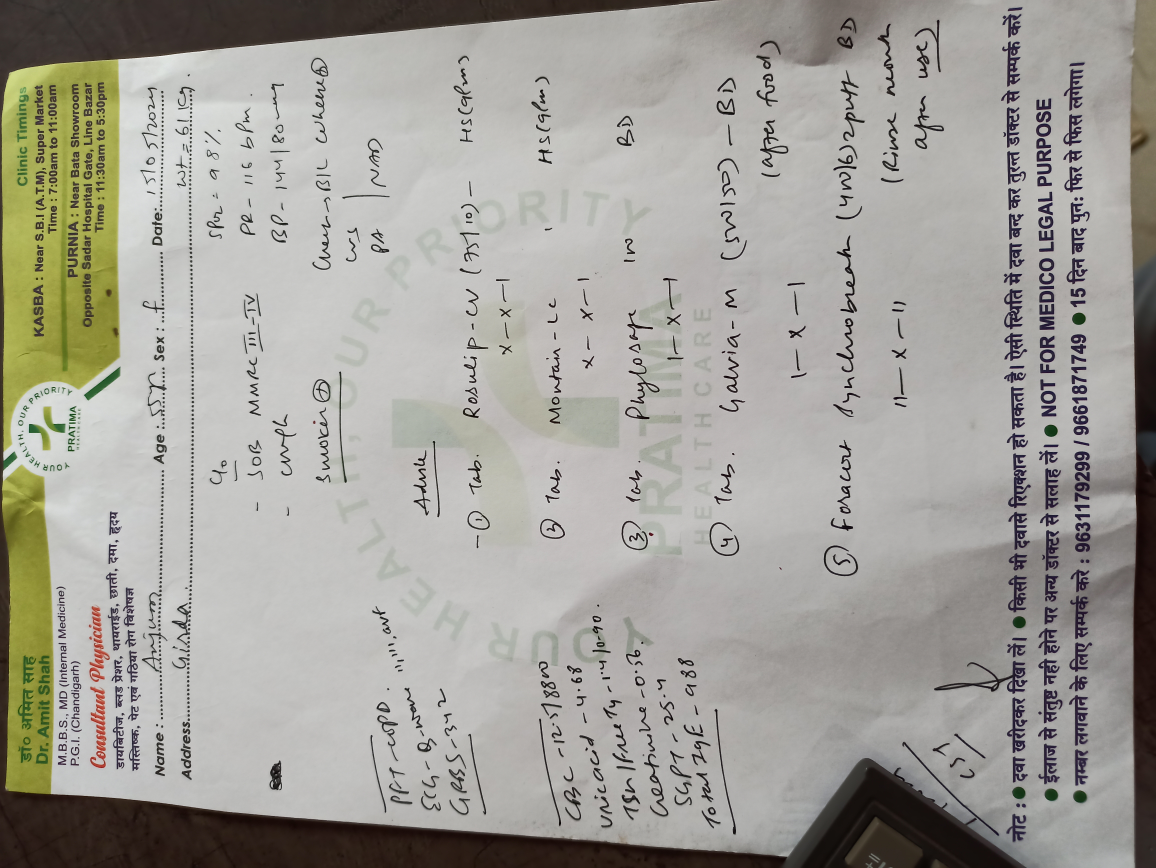 डॉ० अमित साह
Dr. Amit Shah
M.B.B.S., MD (Internal Medicine)
P.G.I. (Chandigarh)
Consultant Physician
डायबिटीज, ब्लड प्रेशर, थायराईड, छाती, दमा, हृदय
मस्तिष्क, पेट एवं गठिया रोग विशेषज्ञ
YOUR HEALTH, OUR PRIORITY
PRATIMA
HEALTHCARE
Clinic Timings
KASBA : Near S.B.I (A.T.M), Super Market
Time : 7:00am to 11:00am
PURNIA : Near Bata Showroom
Opposite Sadar Hospital Gate, Line Bazar
Time : 11:30am to 5:30pm
Name : Anjum Age : 55y Sex : f Date:
Address wt = 61kg.
C/o
- SOB MMRC III-IV
- cough
Smoker
SPO2 = 98%
PR - 116 bpm.
BP - 144/80
Chest → B/L wheeze
CVS
PA NAD
PFT - COPD.
ECG - Q-wave III, avf
GRBS - 342
CBC - 12.5/8800
Uric acid - 4.68
Creatinine - 0.56.
SGPT - 25.4
Total IgE - 988
Advise
① Tab. Rosulip-CV (75/10) - HS(9pm)
x - x - 1
② Tab. Montain-LC HS(9pm)
x - x - 1
③ Tab. BD
1 - x - 1
④ Tab. Galvia-M (50/50) - BD
(after food)
1 - x - 1
⑤ Foracort Synchrobreath (400/6) 2puff BD
(Rinse mouth
after use)
11 - x - 11
YOUR HEALTH, OUR PRIORITY
PRATIMA
HEALTHCARE
नोट : ● दवा खरीदकर दिखा लें। ● किसी भी दवासे रिएक्शन हो सकता है। ऐसी स्थिति में दवा बन्द कर तुरन्त डॉक्टर से सम्पर्क करें।
● ईलाज से संतुष्ट नही होने पर अन्य डॉक्टर से सलाह लें। ● NOT FOR MEDICO LEGAL PURPOSE
● नम्बर लगवाने के लिए सम्पर्क करे : 9631179299 / 9661871749 ● 15 दिन बाद पुनः फिर से फिस लगेगा।